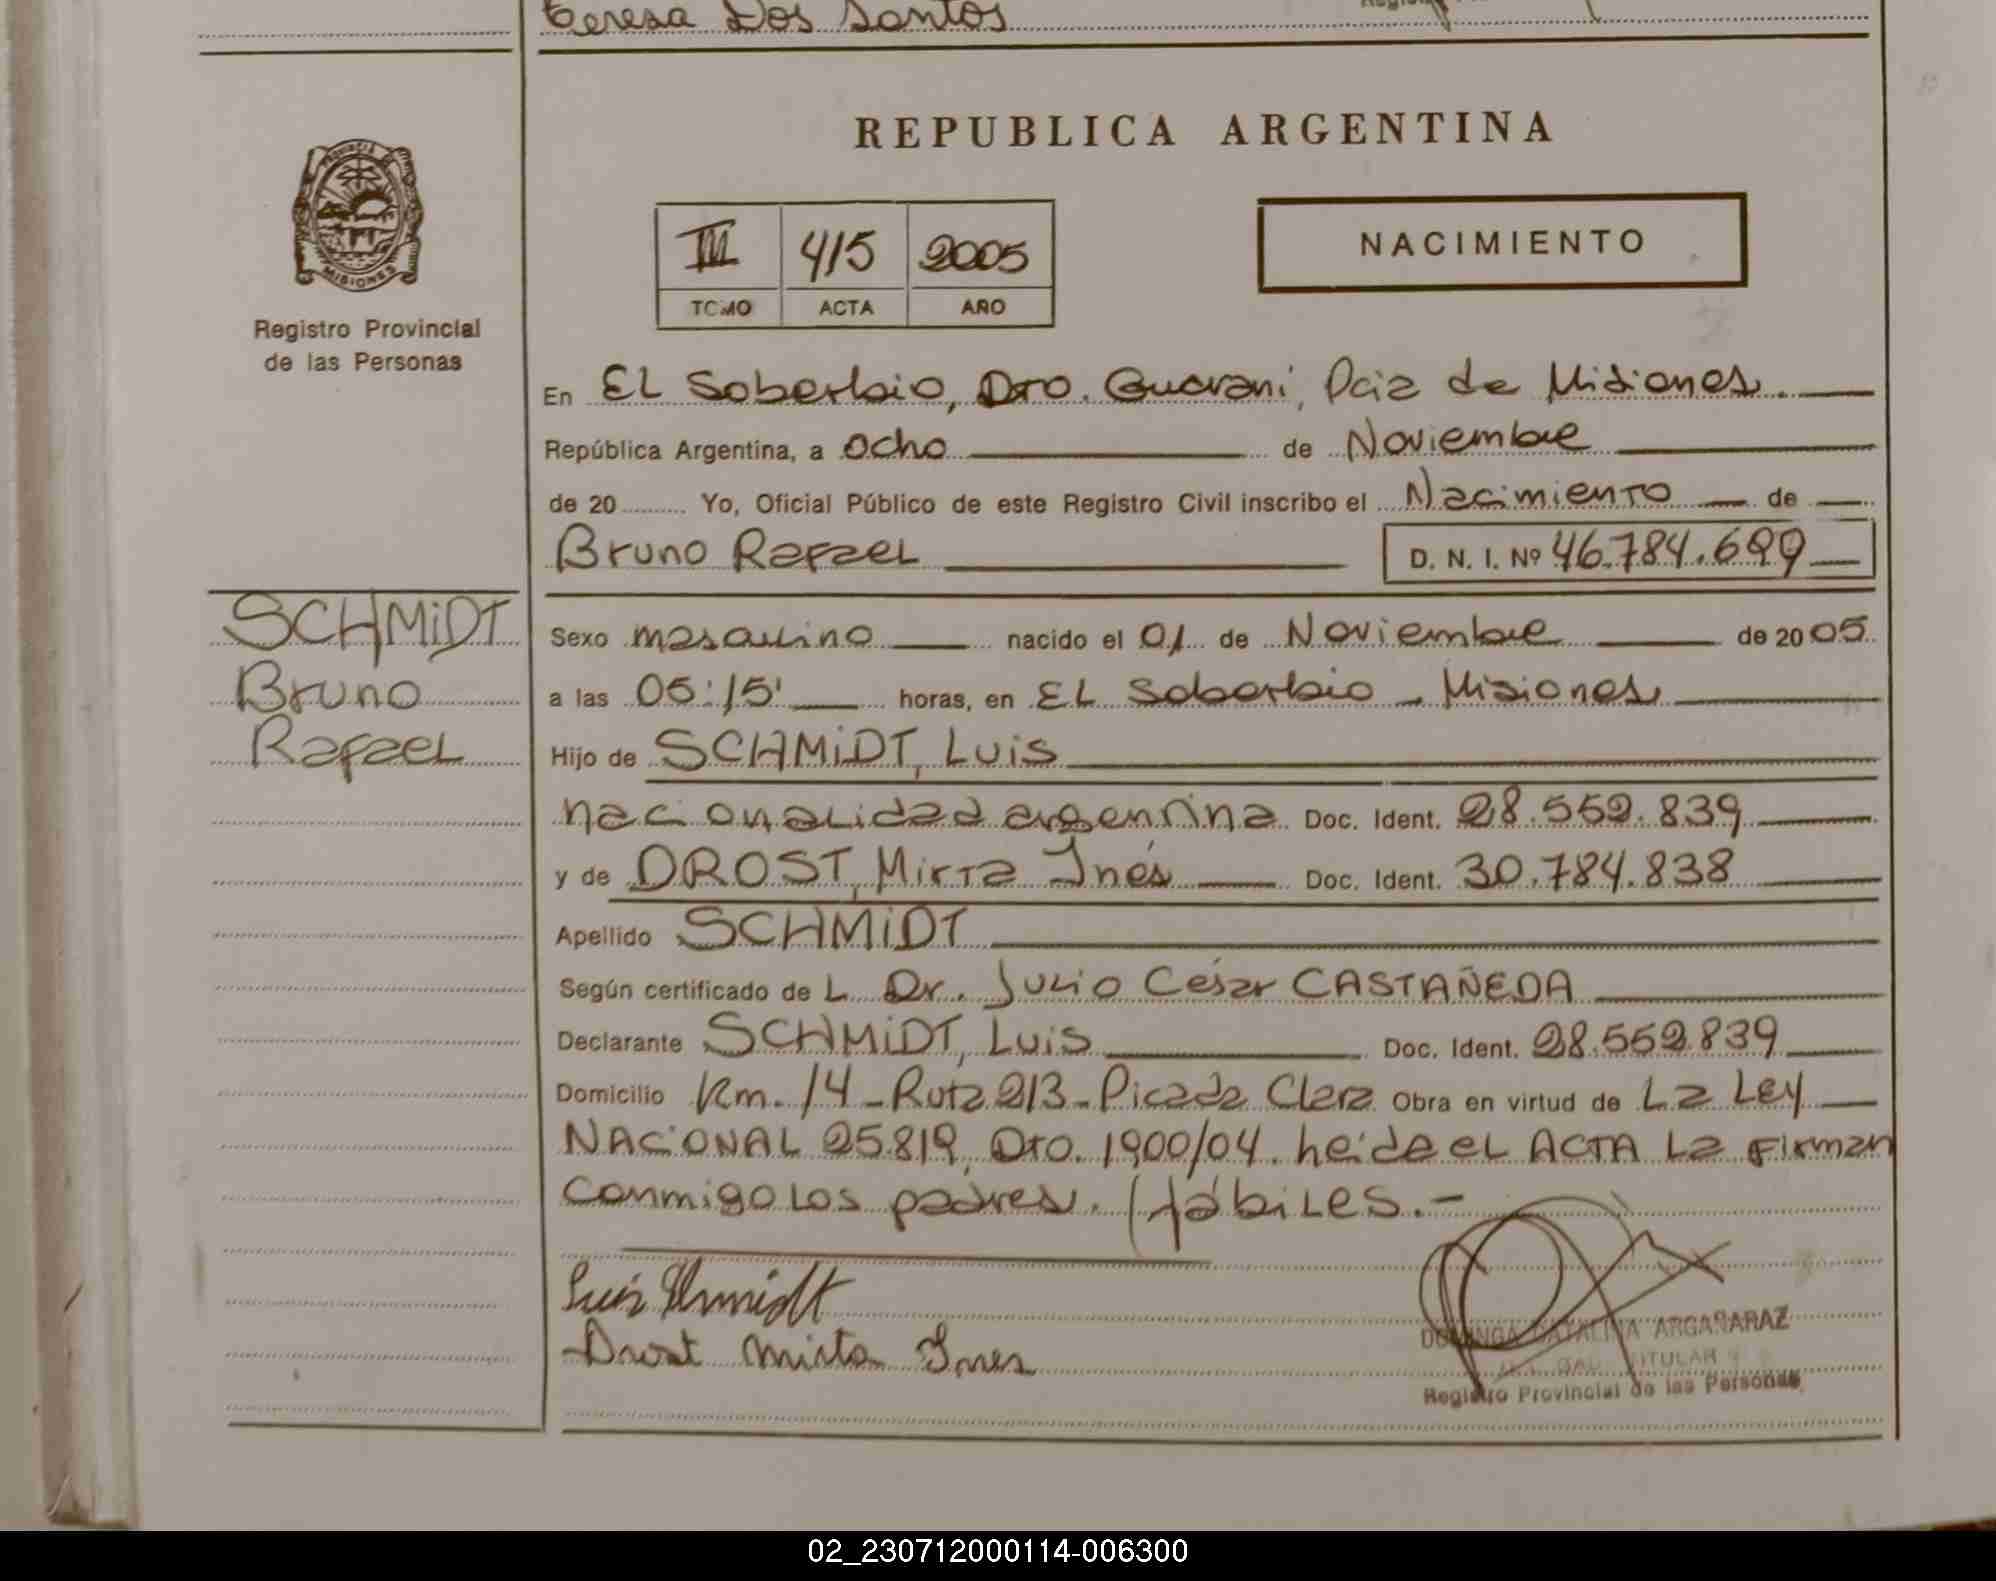 Teresa Dos Santos
REPUBLICA ARGENTINA
PROVINCIA DE
MISIONES
Registro Provincial
de las Personas
III 415 2005
TOMO ACTA AÑO
NACIMIENTO
En EL Soberbio, Dto. Guaraní, Pcia de Misiones.
República Argentina, a ocho de Noviembre
de 20 Yo, Oficial Público de este Registro Civil inscribo el Nacimiento de
Bruno Rafael D. N. I. Nº 46.784.699
SCHMiDT
Bruno
Rafael
Sexo masculino nacido el 01 de Noviembre de 2005
a las 05:15' horas, en EL Soberbio - Misiones
Hijo de SCHMiDT, Luis
nacionalidad argentina Doc. Ident. 28.552.839
y de DROST, Mirta Inés Doc. Ident. 30.784.838
Apellido SCHMiDT
Según certificado de L Dr. Julio César CASTAÑEDA
Declarante SCHMiDT, Luis Doc. Ident. 28.552.839
Domicilio Km. 14 - Ruta 213 - Picada Clara Obra en virtud de La Ley
NACiONAL 25819, Dto. 1900/04. heida el ACTA La Firman
conmigo los padres. Hábiles.-
Luis Schmidt
Drost Mirta Ines
DOMINGA CATALINA ARGAÑARAZ
TITULAR
Registro Provincial de las Personas
02_230712000114-006300